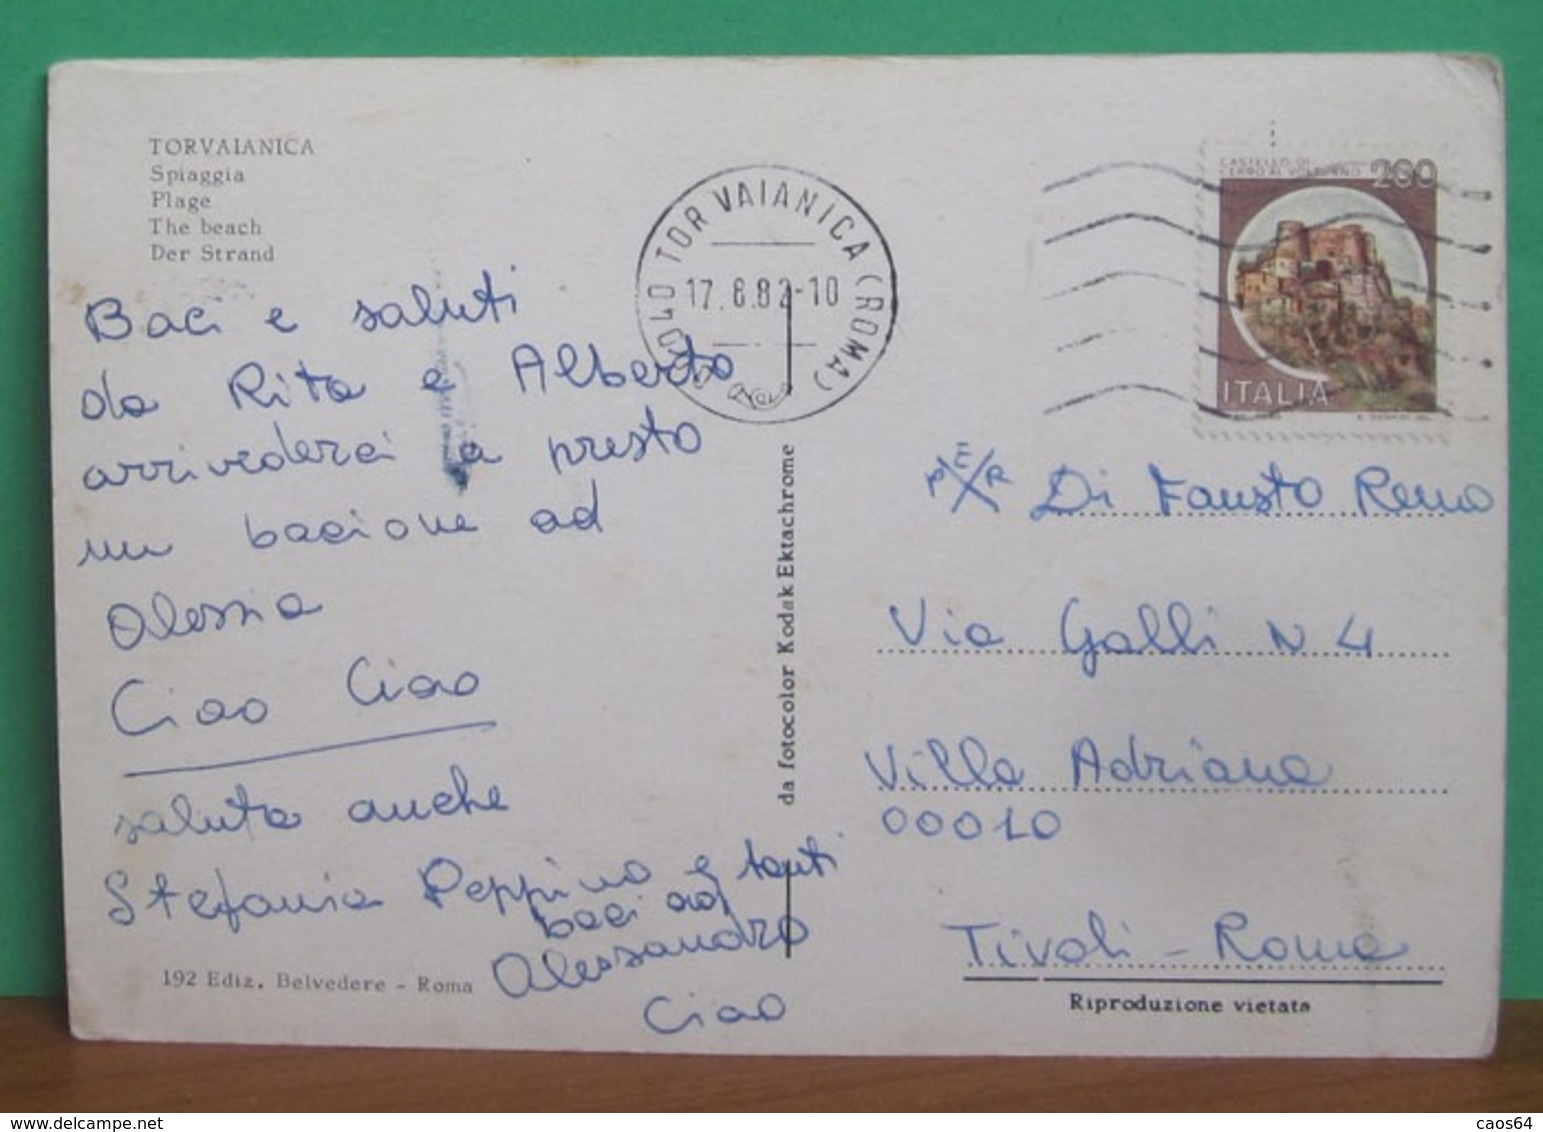 TORVAIANICA
Spiaggia
Plage
The beach
Der Strand
Baci e saluti
da Rita e Alberto
arrivederci a presto
un bacione ad
Alessia
Ciao Ciao
saluta anche
Stefania Peppino e tanti
baci ad
Alessandro
Ciao
192 Ediz. Belvedere - Roma
da fotocolor Kodak Ektachrome
TOR VAIANICA (ROMA)
17.8.82-10
CASTELLO DI
CERRO AL VOLTURNO 200
ITALIA
PER Di Fausto Remo
Via Galli N 4
Villa Adriana
00010
Tivoli - Roma
Riproduzione vietata
caos64